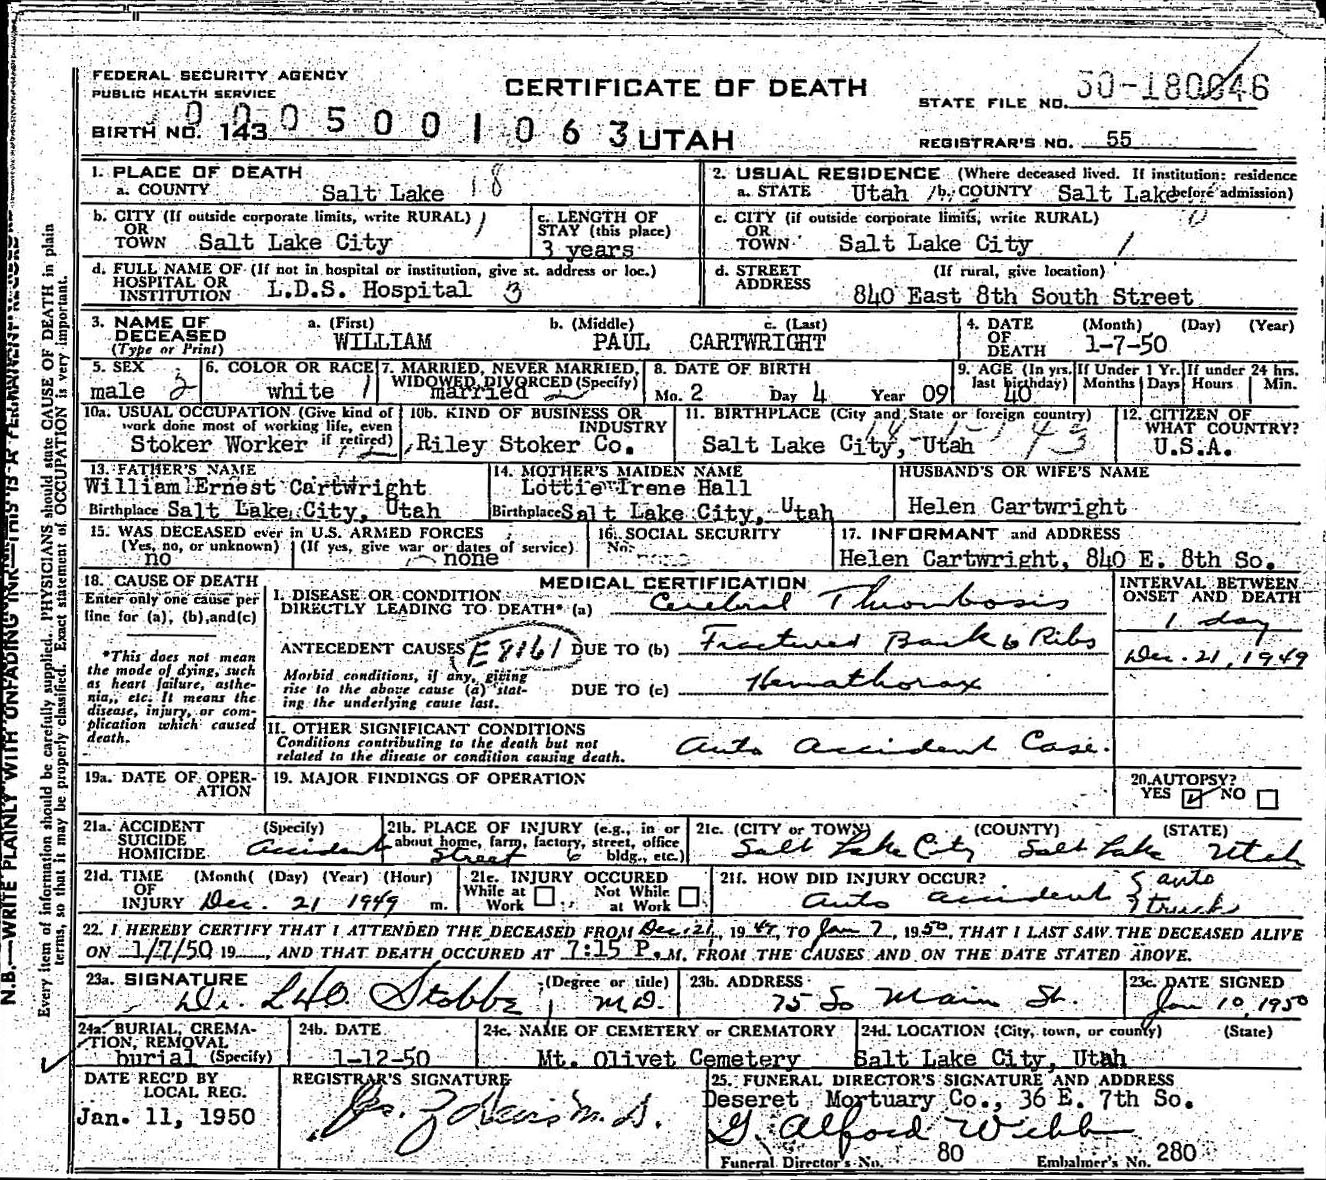 FEDERAL SECURITY AGENCY
PUBLIC HEALTH SERVICE
CERTIFICATE OF DEATH
STATE FILE NO.
BIRTH NO. 143
0005001063
UTAH
REGISTRAR'S NO. 55
1. PLACE OF DEATH
a. COUNTY Salt Lake 18
2. USUAL RESIDENCE (Where deceased lived. If institution: residence before admission)
a. STATE Utah b. COUNTY Salt Lake
b. CITY (If outside corporate limits, write RURAL)
OR
TOWN Salt Lake City
c. LENGTH OF
STAY (this place)
3 years
c. CITY (if outside corporate limits, write RURAL)
OR
TOWN Salt Lake City
d. FULL NAME OF (If not in hospital or institution, give st. address or loc.)
HOSPITAL OR
INSTITUTION L.D.S. Hospital 3
d. STREET (If rural, give location)
ADDRESS
840 East 8th South Street
3. NAME OF
DECEASED
(Type or Print)
a. (First) b. (Middle) c. (Last)
WILLIAM PAUL CARTWRIGHT
4. DATE (Month) (Day) (Year)
OF
DEATH 1-7-50
5. SEX
male 2
6. COLOR OR RACE
white 1
7. MARRIED, NEVER MARRIED,
WIDOWED, DIVORCED (Specify)
married 2
8. DATE OF BIRTH
Mo. 2 Day 4 Year 09
9. AGE (In yrs. last birthday) 40
If Under 1 Yr. Months Days
If under 24 hrs. Hours Min.
10a. USUAL OCCUPATION (Give kind of
work done most of working life, even
if retired)
Stoker Worker
10b. KIND OF BUSINESS OR
INDUSTRY
Riley Stoker Co.
11. BIRTHPLACE (City and State or foreign country)
Salt Lake City, Utah
12. CITIZEN OF
WHAT COUNTRY?
U.S.A.
13. FATHER'S NAME
William Ernest Cartwright
Birthplace Salt Lake City, Utah
14. MOTHER'S MAIDEN NAME
Lottie Irene Hall
Birthplace Salt Lake City, Utah
HUSBAND'S OR WIFE'S NAME
Helen Cartwright
15. WAS DECEASED ever in U.S. ARMED FORCES
(Yes, no, or unknown) (If yes, give war or dates of service)
no none
16. SOCIAL SECURITY
No.
17. INFORMANT and ADDRESS
Helen Cartwright, 840 E. 8th So.
18. CAUSE OF DEATH
Enter only one cause per
line for (a), (b), and (c)
*This does not mean
the mode of dying, such
as heart failure, asthe-
nia, etc. It means the
disease, injury, or com-
plication which caused
death.
MEDICAL CERTIFICATION
I. DISEASE OR CONDITION
DIRECTLY LEADING TO DEATH* (a) Cerebral Thrombosis
ANTECEDENT CAUSES E8161 DUE TO (b) Fractured Back 6 Ribs
Morbid conditions, if any, giving
rise to the above cause (a) stat-
ing the underlying cause last.
DUE TO (c) Hemathorax
INTERVAL BETWEEN
ONSET AND DEATH
1 day
Dec. 21, 1949
II. OTHER SIGNIFICANT CONDITIONS
Conditions contributing to the death but not
related to the disease or condition causing death.
Auto Accident Case.
19a. DATE OF OPER-
ATION
19. MAJOR FINDINGS OF OPERATION
20. AUTOPSY?
YES NO
21a. ACCIDENT (Specify)
SUICIDE
HOMICIDE Accident
21b. PLACE OF INJURY (e.g., in or
about home, farm, factory, street, office
bldg., etc.)
Street 6
21c. (CITY or TOWN) (COUNTY) (STATE)
Salt Lake City Salt Lake Utah
21d. TIME (Month) (Day) (Year) (Hour)
OF
INJURY Dec. 21 1949 m.
21e. INJURY OCCURED
While at Work Not While at Work
21f. HOW DID INJURY OCCUR?
Auto accident auto
trucks
22. I HEREBY CERTIFY THAT I ATTENDED THE DECEASED FROM Dec. 21, 1949, TO Jan 7, 1950, THAT I LAST SAW THE DECEASED ALIVE
ON 1/7/50 19 , AND THAT DEATH OCCURED AT 7:15 P.M. FROM THE CAUSES AND ON THE DATE STATED ABOVE.
23a. SIGNATURE (Degree or title)
M.D.
23b. ADDRESS
75 So Main St.
23c. DATE SIGNED
Jan 10, 1950
24a. BURIAL, CREMA-
TION, REMOVAL
burial (Specify)
24b. DATE
1-12-50
24c. NAME OF CEMETERY or CREMATORY
Mt. Olivet Cemetery
24d. LOCATION (City, town, or county) (State)
Salt Lake City, Utah
DATE REC'D BY
LOCAL REG.
Jan. 11, 1950
REGISTRAR'S SIGNATURE
25. FUNERAL DIRECTOR'S SIGNATURE AND ADDRESS
Deseret Mortuary Co., 36 E. 7th So.
G. Alford Webb
Funeral Director's No. 80 Embalmer's No. 280
N.B.—WRITE PLAINLY WITH UNFADING INK—THIS IS A PERMANENT RECORD
Every item of information should be carefully supplied. PHYSICIANS should state CAUSE OF DEATH in plain
terms, so that it may be properly classified. Exact statement of OCCUPATION is very important.